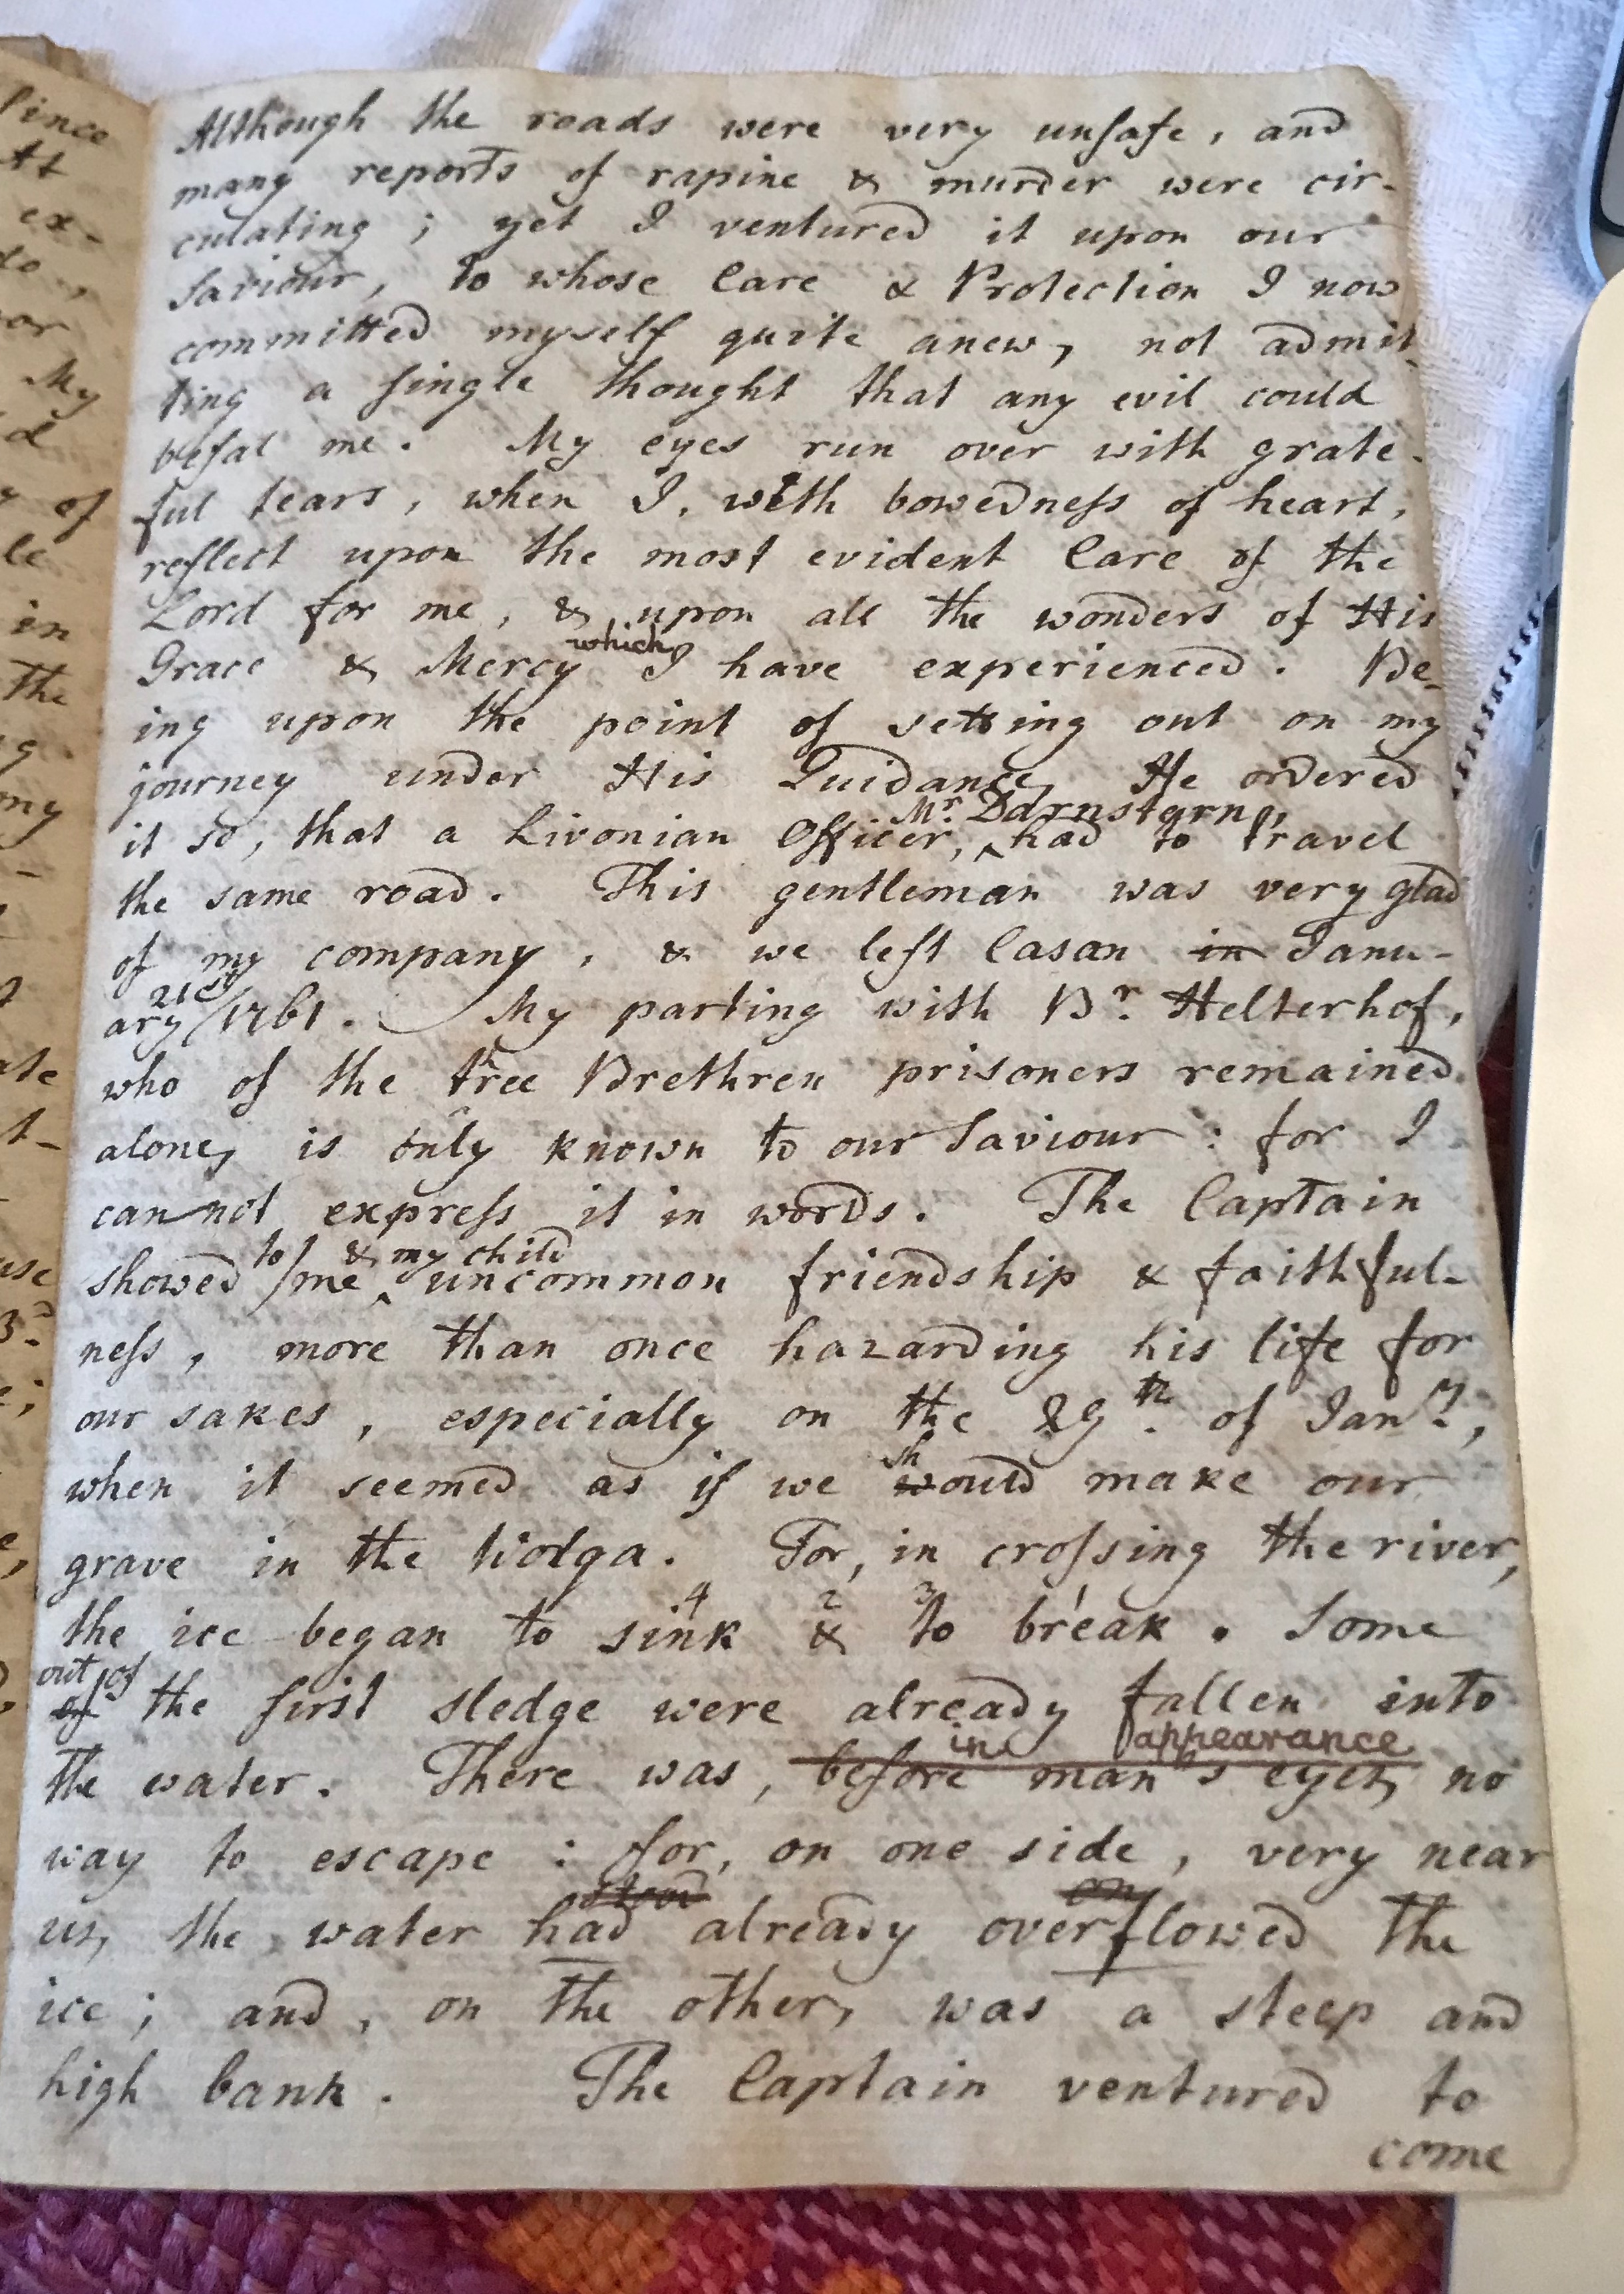 Although the roads were very unsafe, and
many reports of rapine & murder were cir-
culating; yet I ventured it upon our
Saviour, to whose Care & Protection I now
committed myself quite anew, not admit-
ting a single thought that any evil could
befal me. My eyes run over with grate-
ful tears, when I, with bowedness of heart,
reflect upon the most evident Care of the
Lord for me, & upon all the wonders of His
which
Grace & Mercy I have experienced. Be-
ing upon the point of setting out on my
journey under His Guidance, He ordered
Mr. Darnstarn,
it so, that a Livonian Officer, ^ had to travel
the same road. This gentleman was very glad
of my company, & we left Casan in Janu-
21st
ary / 1761. My parting with Br. Helterhof,
h
who of the tree Brethren prisoners remained
alone, is only known to our Saviour: for I
cannot express it in words. The Captain
to & my child
showed / me ^ uncommon friendship & faithful-
ness, more than once hazarding his life for
our sakes, especially on the 29th. of Jany.,
sh
when it seemed as if we would make our
grave in the Wolga. For, in crossing the river,
4 2 3 1
the ice began to sink & to break. Some
out of
of the first sledge were already fallen into
in appearance
the water. There was, before man's eyes, no
way to escape: for, on one side, very near
stood on
us, the water had already overflowed the
ice; and, on the other, was a steep and
high bank. The Captain ventured to
come
Since
At
ex-
do,
or
My
d
of
le
in
the
my
ate
t-
use
3d